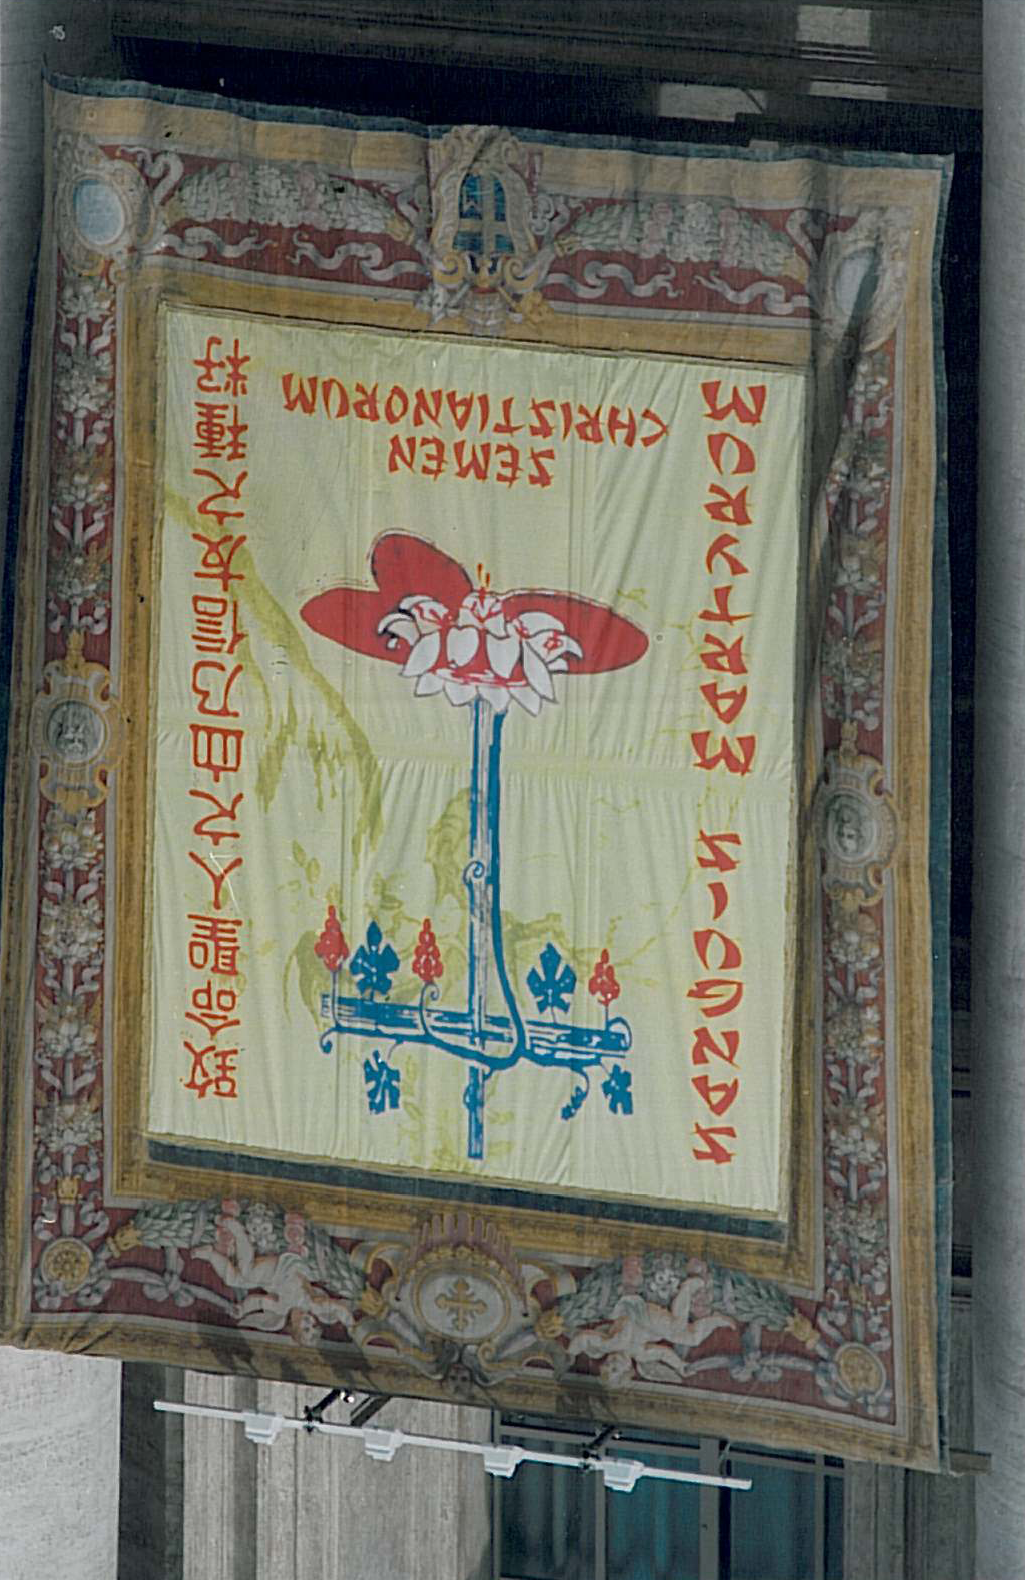 SANGUIS MARTYRUM
SEMEN
CHRISTIANORUM
致命聖人之血乃信友之種籽